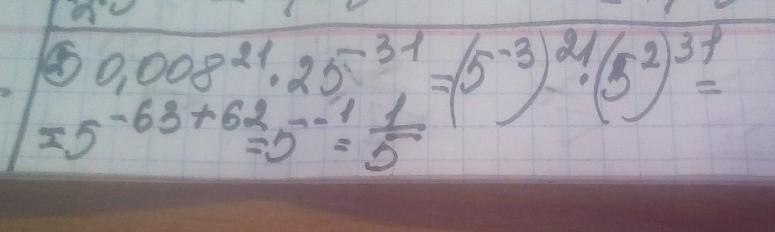 0,008^21 · 25^-31 = (5^-3)^21 · (5^2)^31 =
= 5^-63+62 = 5^-1 = 1/5